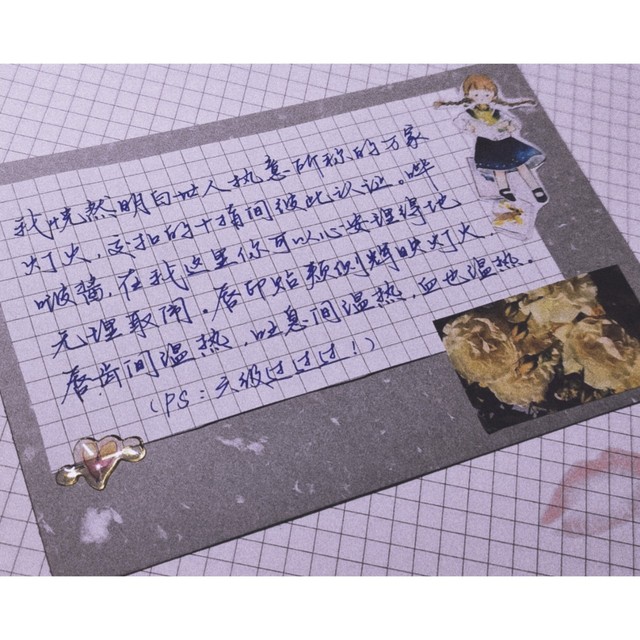 我恍然明白世人执意所称的万家
灯火，交扣的十指间彼此认证。哗
啵酱，在我这里你可以心安理得地
无理取闹。唇印贴颊侧辉映灯火.
唇齿间温热，吐息间温热，血也温热.
（PS：六级过过过！）